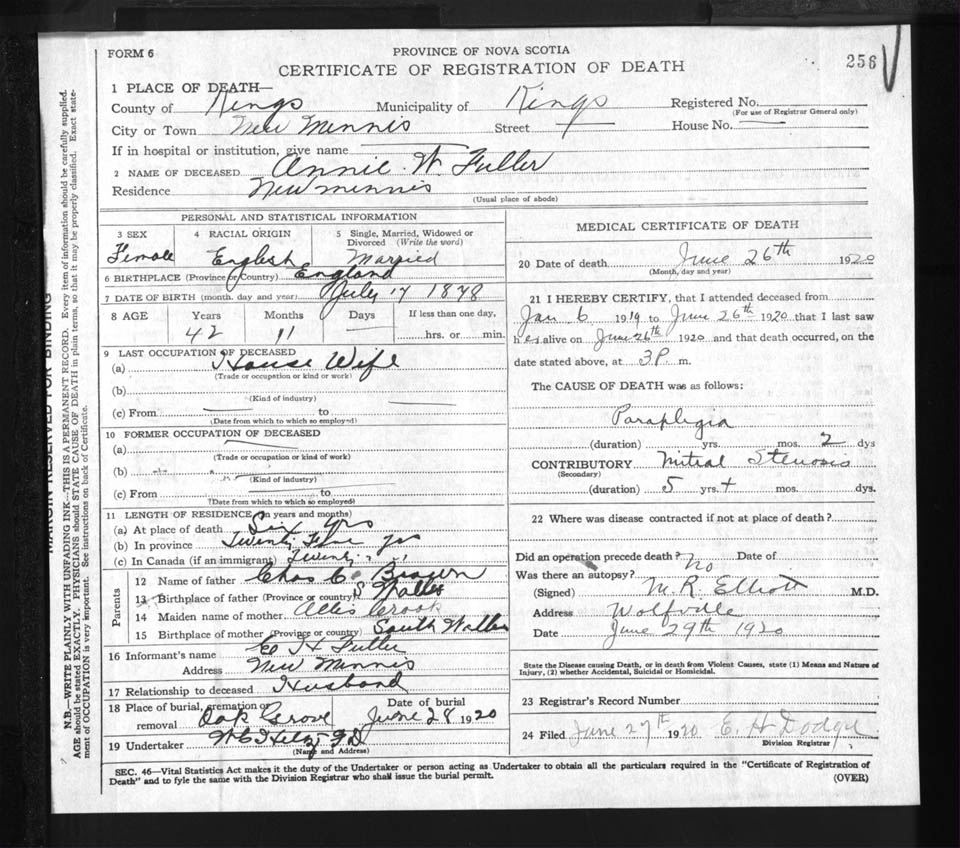 FORM 6
PROVINCE OF NOVA SCOTIA
CERTIFICATE OF REGISTRATION OF DEATH
256
MARGIN RESERVED FOR BINDING
N.B.—WRITE PLAINLY WITH UNFADING INK—THIS IS A PERMANENT RECORD. Every item of information should be carefully supplied.
AGE should be stated EXACTLY. PHYSICIANS should STATE CAUSE OF DEATH in plain terms, so that it may be properly classified. Exact state-
ment of OCCUPATION is very important. See instructions on back of Certificate.
1 PLACE OF DEATH—
County of Kings Municipality of Kings Registered No.
(For use of Registrar General only)
City or Town New Minnis Street House No.
If in hospital or institution, give name
2 NAME OF DECEASED Annie W. Fuller
Residence New Minnis
(Usual place of abode)
PERSONAL AND STATISTICAL INFORMATION
3 SEX 4 RACIAL ORIGIN 5 Single, Married, Widowed or Divorced (Write the word)
Female English Married
6 BIRTHPLACE (Province or Country) England
7 DATE OF BIRTH (month, day and year) July 17 1878
8 AGE Years Months Days If less than one day,
42 11 hrs. or min.
9 LAST OCCUPATION OF DECEASED
(a) House Wife
(Trade or occupation or kind or work)
(b)
(Kind of industry)
(c) From to
(Date from which to which so employed)
10 FORMER OCCUPATION OF DECEASED
(a)
(Trade or occupation or kind of work)
(b)
(Kind of industry)
(c) From to
(Date from which to which so employed)
11 LENGTH OF RESIDENCE (in years and months)
(a) At place of death Six yrs
(b) In province Twenty Five yrs
(c) In Canada (if an immigrant) Twenty " "
Parents
12 Name of father Chas C.
13 Birthplace of father (Province or country) S Walles
14 Maiden name of mother Allis Crook
15 Birthplace of mother (Province or country) South Walles
16 Informant's name Ed H Fuller
Address New Minnis
17 Relationship to deceased Husband
18 Place of burial, cremation or removal Oak Grove Date of burial June 28 1920
19 Undertaker
(Name and Address)
MEDICAL CERTIFICATE OF DEATH
20 Date of death June 26th 1920
(Month, day and year)
21 I HEREBY CERTIFY, that I attended deceased from
Jan 6 1919 to June 26th 1920 that I last saw
her alive on June 26th 1920 and that death occurred, on the
date stated above, at 3P m.
The CAUSE OF DEATH was as follows:
Paraplegia
(duration) yrs. mos. 2 dys
CONTRIBUTORY Mitral Stenosis
(Secondary)
(duration) 5 yrs. + mos. dys.
22 Where was disease contracted if not at place of death?
Did an operation precede death? No Date of
Was there an autopsy?
(Signed) M. R. Elliott M.D.
Address Wolfville
Date June 29th 1920
State the Disease causing Death, or in death from Violent Causes, state (1) Means and Nature of
Injury, (2) whether Accidental, Suicidal or Homicidal.
23 Registrar's Record Number
24 Filed June 29th 1920 E. H Dodge
Division Registrar
SEC. 46—Vital Statistics Act makes it the duty of the Undertaker or person acting as Undertaker to obtain all the particulars required in the "Certificate of Registration of
Death" and to fyle the same with the Division Registrar who shall issue the burial permit.
(OVER)